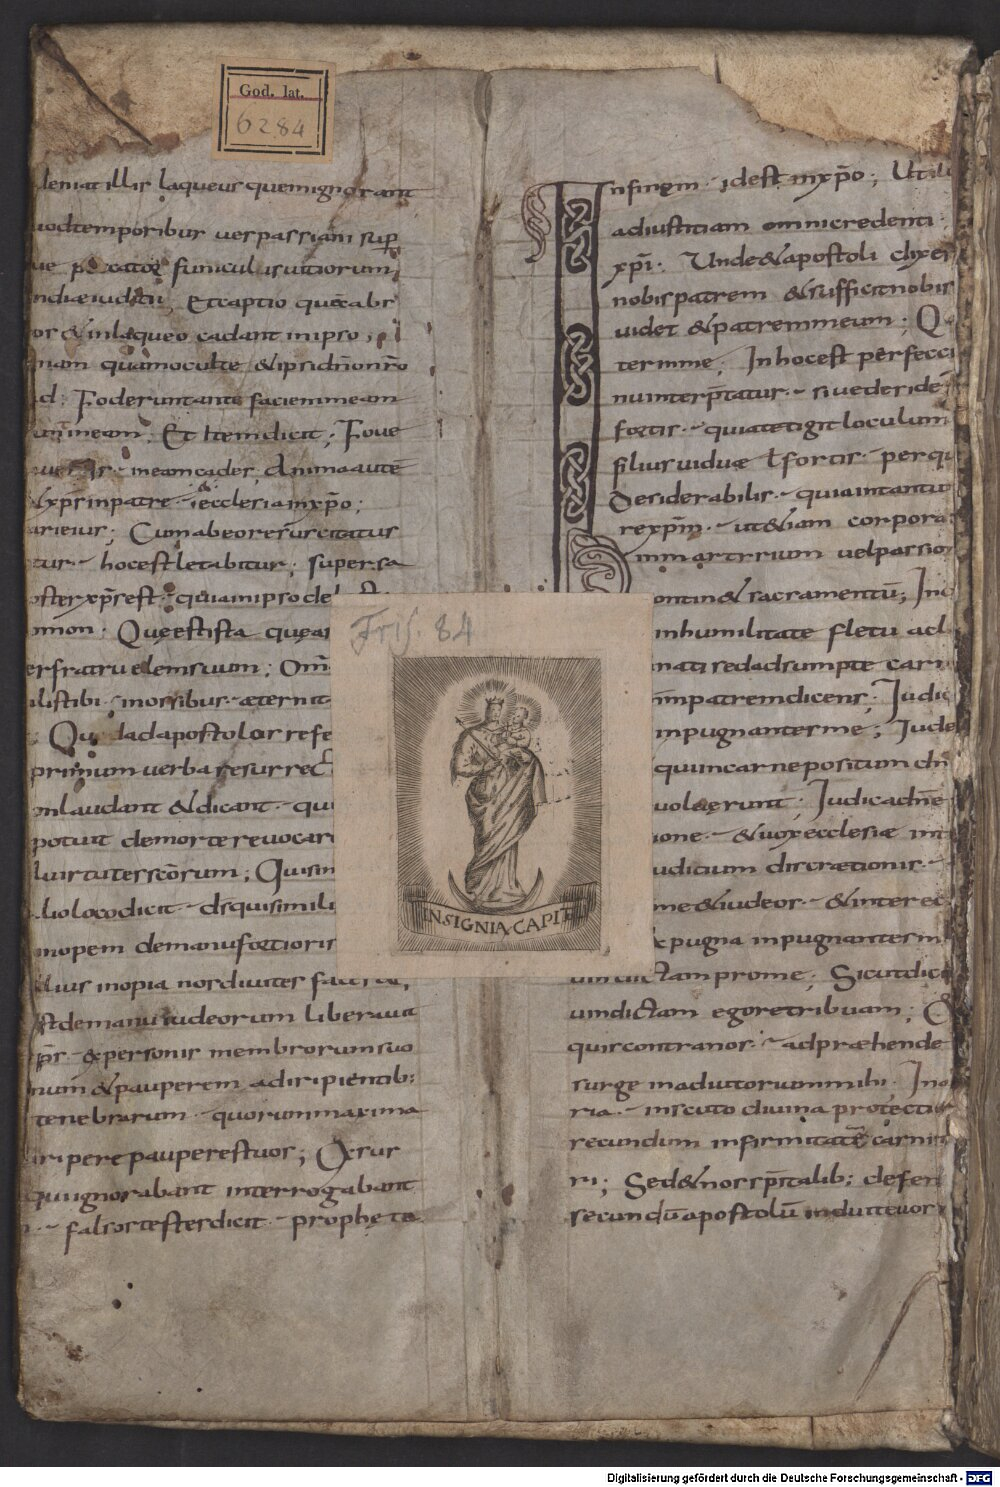 Cod. lat.
6284
ueniat illis laqueus quem ignorant
uod temporibus uespassiani sup
funiculis uitiorum
ndiae iudicii; Et captio quę abs
or & in laqueo cadant in ipso;
nam quam occulte & ipsi dn̄m nr̄o
d; Foderunt ante faciem meam
animam meam; Et item dicit; Foue
me am cades; Anima autē
xp̄s in patre ecclesia in xp̄o;
arieius; Cum ab eo resuscitatus
tur hoc est letabitur; super sa
oster xp̄s est quia in ipso de
omon. Quę est ista quę as
erfratruelem suum; Om̄
ilis tibi in ossibus aeternit
; Quod ad apostolos refe
primum uerba resurrec
on laudant & dicant qui
potuit de morte reuocare
l uirtutes scōrum; Quis im
lio loco dicit ds̄ quis simili
inopem de manu fortioris
illius inopia nos diuites
st de manu iudeorum liberauit
xp̄s ex personis membrorum suo
num & pauperem a diripientib;
tenebrarum quorum maxima
iripere pauper est uos; Exsur
qui ignorabant interrogabant
falsos testes dicit propheta
In finem idest in xp̄o; Utili
ad iustitiam omni credenti
xp̄i. Unde & apostoli dixer
nobis patrem & sufficit nobis
uidet & patrem meum; Q
ter in me; In hoc est perfecci
nu interp̄tatur siue deside
fortis quia tetigit loculum
filius uiduae t fortis per qu
Desiderabilis quia in tantu
re xp̄m ut etiam corpora
in martirium uel passion
continet sacramentū; Inc
in humilitate fletu ad
nati sed adsumpte carn
ī patrem dicens; Iudic
inpugnantes me; Iude
qui in carne positum dn̄
uoluerunt; Iudica dn̄e
ione & uox ecclesiae in
iudicium discretionis
me & iudeos & inter ec
expugna inpugnantes m
uindictam prome; Sicut dic
uindictam ego retribuam; E
quis contra nos adpraehende
surge in adiutorium mihi. Ino
ria. in scuto diuina protecti
secundum infirmitatē carnis
ri; Sed & nos sp̄italib; defen
secundū apostolū induite uos
Fris. 84
INSIGNIA CAPIT
Digitalisierung gefördert durch die Deutsche Forschungsgemeinschaft - DFG